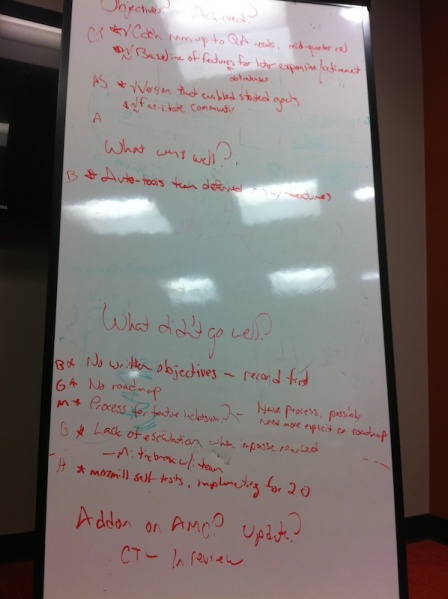 Objectives? Achieved?
CT * √ Catch runup to QA needs, mid-quarter rel
* √ Baseline of features for later expansion/
AS * √ Version that enabled stated goals
* √ Facilitate
A
What went well?
B * Auto-tools team
What didn't go well?
B * No written objectives - record first
G * No roadmap
M * Process for feature inclusion? - Have process, possibly
need more explicit on roadmap
B * Lack of escalation when impasse reached
- Mitigate w/ team
H * mozmill self tests, implementing for 2.0
Addon on AMO? Update?
CT - In review